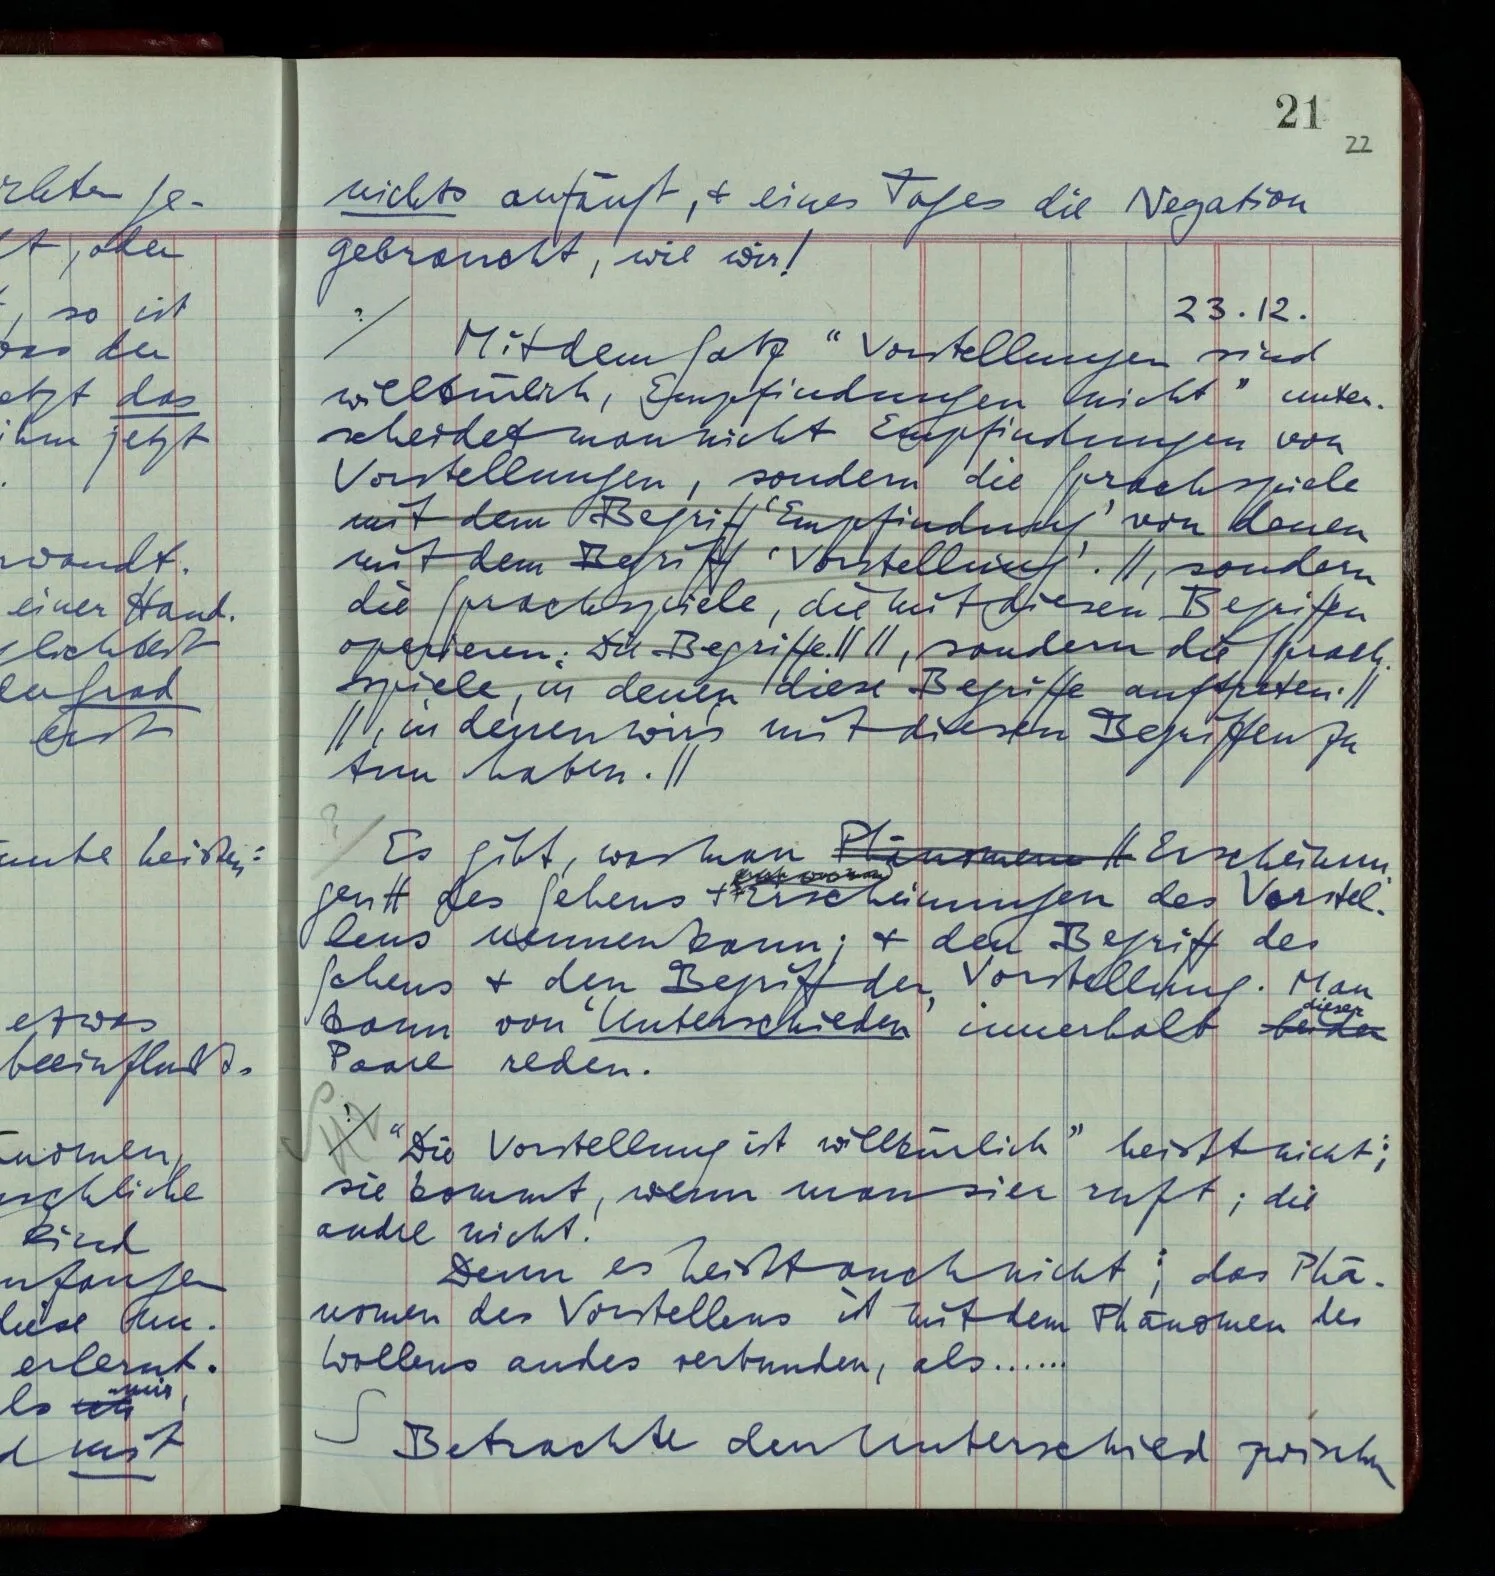 21
22
nichts anfängt, & eines Tages die Negation
gebraucht, wie wir!
23.12.
?/
Mit dem Satz "Vorstellungen sind
willkürlich, Empfindungen nicht" unter-
scheidet man nicht Empfindungen von
Vorstellungen, sondern die Sprachspiele
mit dem Begriff 'Empfindung' von denen
mit dem Begriff 'Vorstellung'. //, sondern
die Sprachspiele, die mit diesen Begriffen
operieren. Die Begriffe.// //, sondern die Sprach-
spiele, in denen diese Begriffe auftreten.//
//, in denen wirs mit diesen Begriffen zu
tun haben.//
?/
Es gibt, was man Phänomene // Erscheinun-
gen // des Sehens & Erscheinungen des Vorstel-
lens nennen kann; & den Begriff des
Sehens & den Begriff der Vorstellung. Man
dieser
kann von 'Unterschieden' innerhalb beider
Paare reden.
?/
"Die Vorstellung ist willkürlich" heißt nicht;
sie kommt, wenn man sie ruft; die
andre nicht.
Denn es heißt auch nicht; das Phä-
nomen des Vorstellens ist mit dem Phänomen des
Wollens andes verbunden, als......
∫ Betrachte den Unterschied zwischen
rkten ge-
, oder
, so ist
der
jetzt das
ihm jetzt
einer Hand.
Grad
erst
heißen:
etwas
beeinflußt.
Phänomen,
Kind
anfangen
diese
erlernt.
mir,
mit